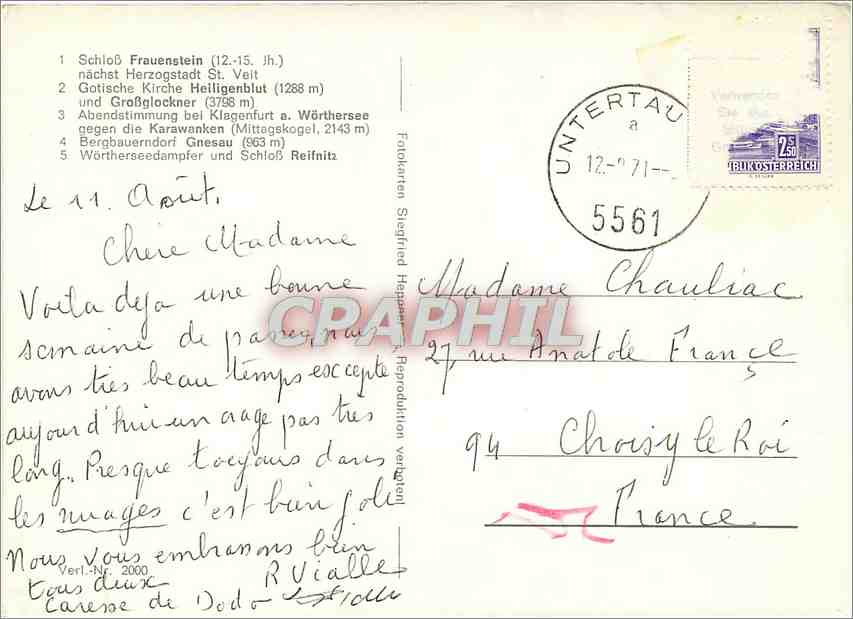 1 Schloß Frauenstein (12.-15. Jh.)
nächst Herzogstadt St. Veit
2 Gotische Kirche Heiligenblut (1288 m)
und Großglockner (3798 m)
3 Abendstimmung bei Klagenfurt a. Wörthersee
gegen die Karawanken (Mittagskogel, 2143 m)
4 Bergbauerndorf Gnesau (963 m)
5 Wörtherseedampfer und Schloß Reifnitz
Le 11 Août,
Chère Madame
Voila deja une bonne
semaine de passer, nous
avons très beau temps excepte
aujourd'hui un orage pas très
long. Presque toujours dans
les nuages c'est bien joli
Nous vous embrassons bien
tous deux R Vialle
Caresse de Dodo
Verl.-Nr. 2000
Fotokarten Siegfried Reproduktion verboten!
CPAPHIL
UNTERTAU
a
12. 71
5561
Verwenden
Sie
2.50
BLIK ÖSTERREICH
Madame Chauliac
27, rue Anatole France
94 Choisy le Roi
France